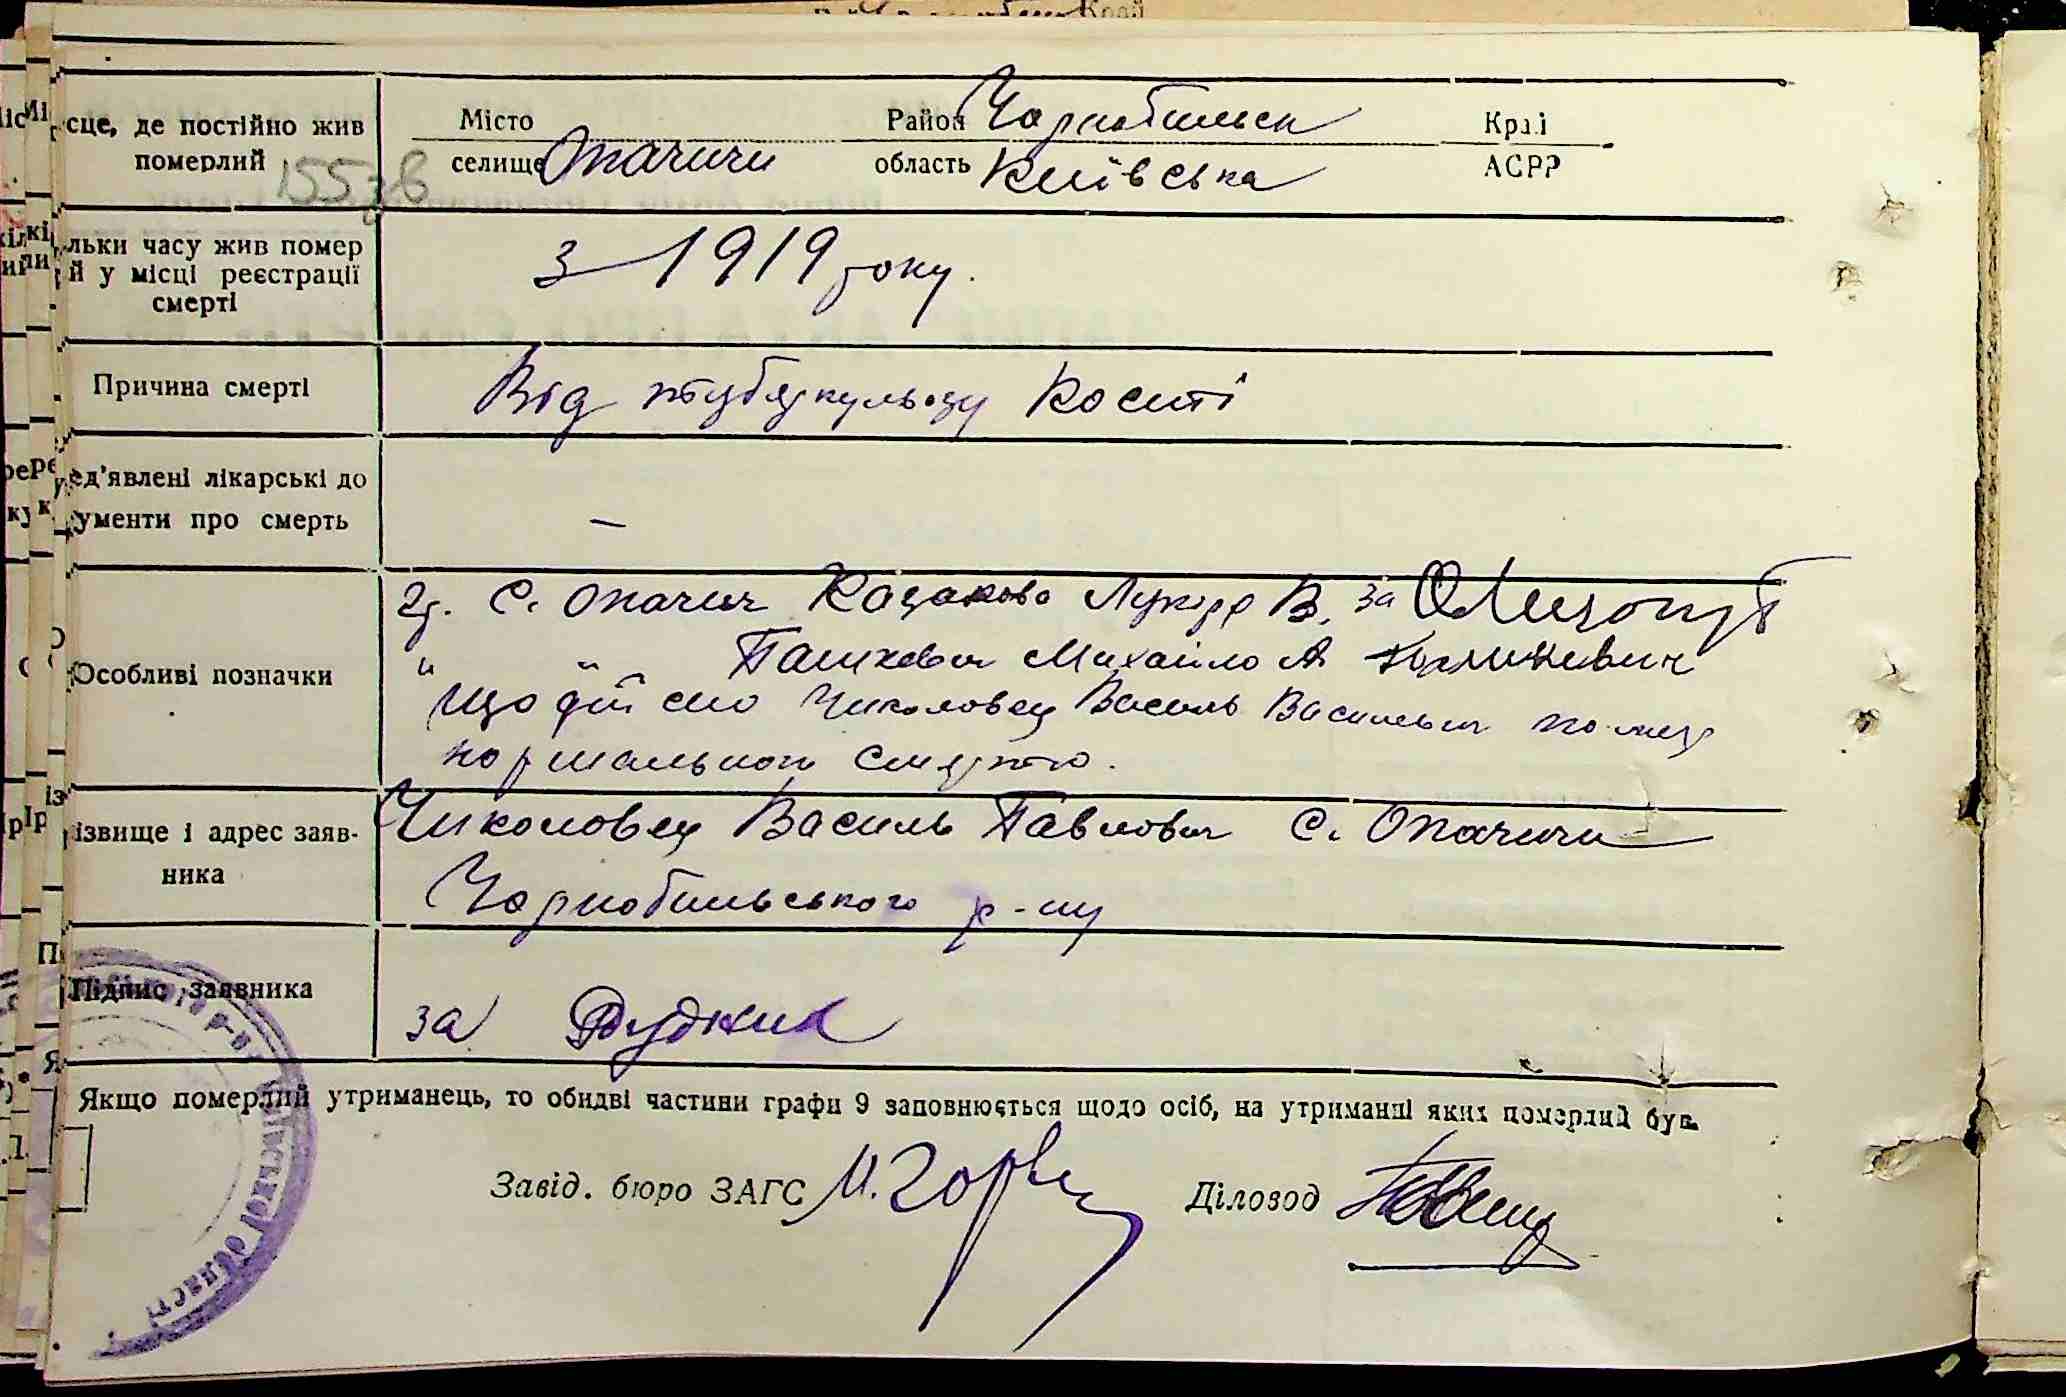 сце, де постійно жив
померлий
155зв
Місто
селище Опачичи
Район Чорнобильськ
область Київська
Краї
АСРР
льки часу жив помер
й у місці реєстрації
смерті
З 1919 року.
Причина смерті
Від тубэркульозу Кості
ед'явлені лікарські до
ументи про смерть
—
Особливі позначки
гр. С. Опачич Казакова В. за
" " Пашкович Михайло А
що дійсно Чиколовец Василь Васильович помер
нормальною смертю.
ізвище і адрес заяв-
ника
Чиколовец Василь Павлович С. Опачичи
Чорнобильського р-ну
Підпис заявника
за Рудник
Якщо померлий утриманець, то обидві частини графи 9 заповнюється щодо осіб, на утриманні яких померлий був.
Завід. бюро ЗАГС
Діловод
ської області